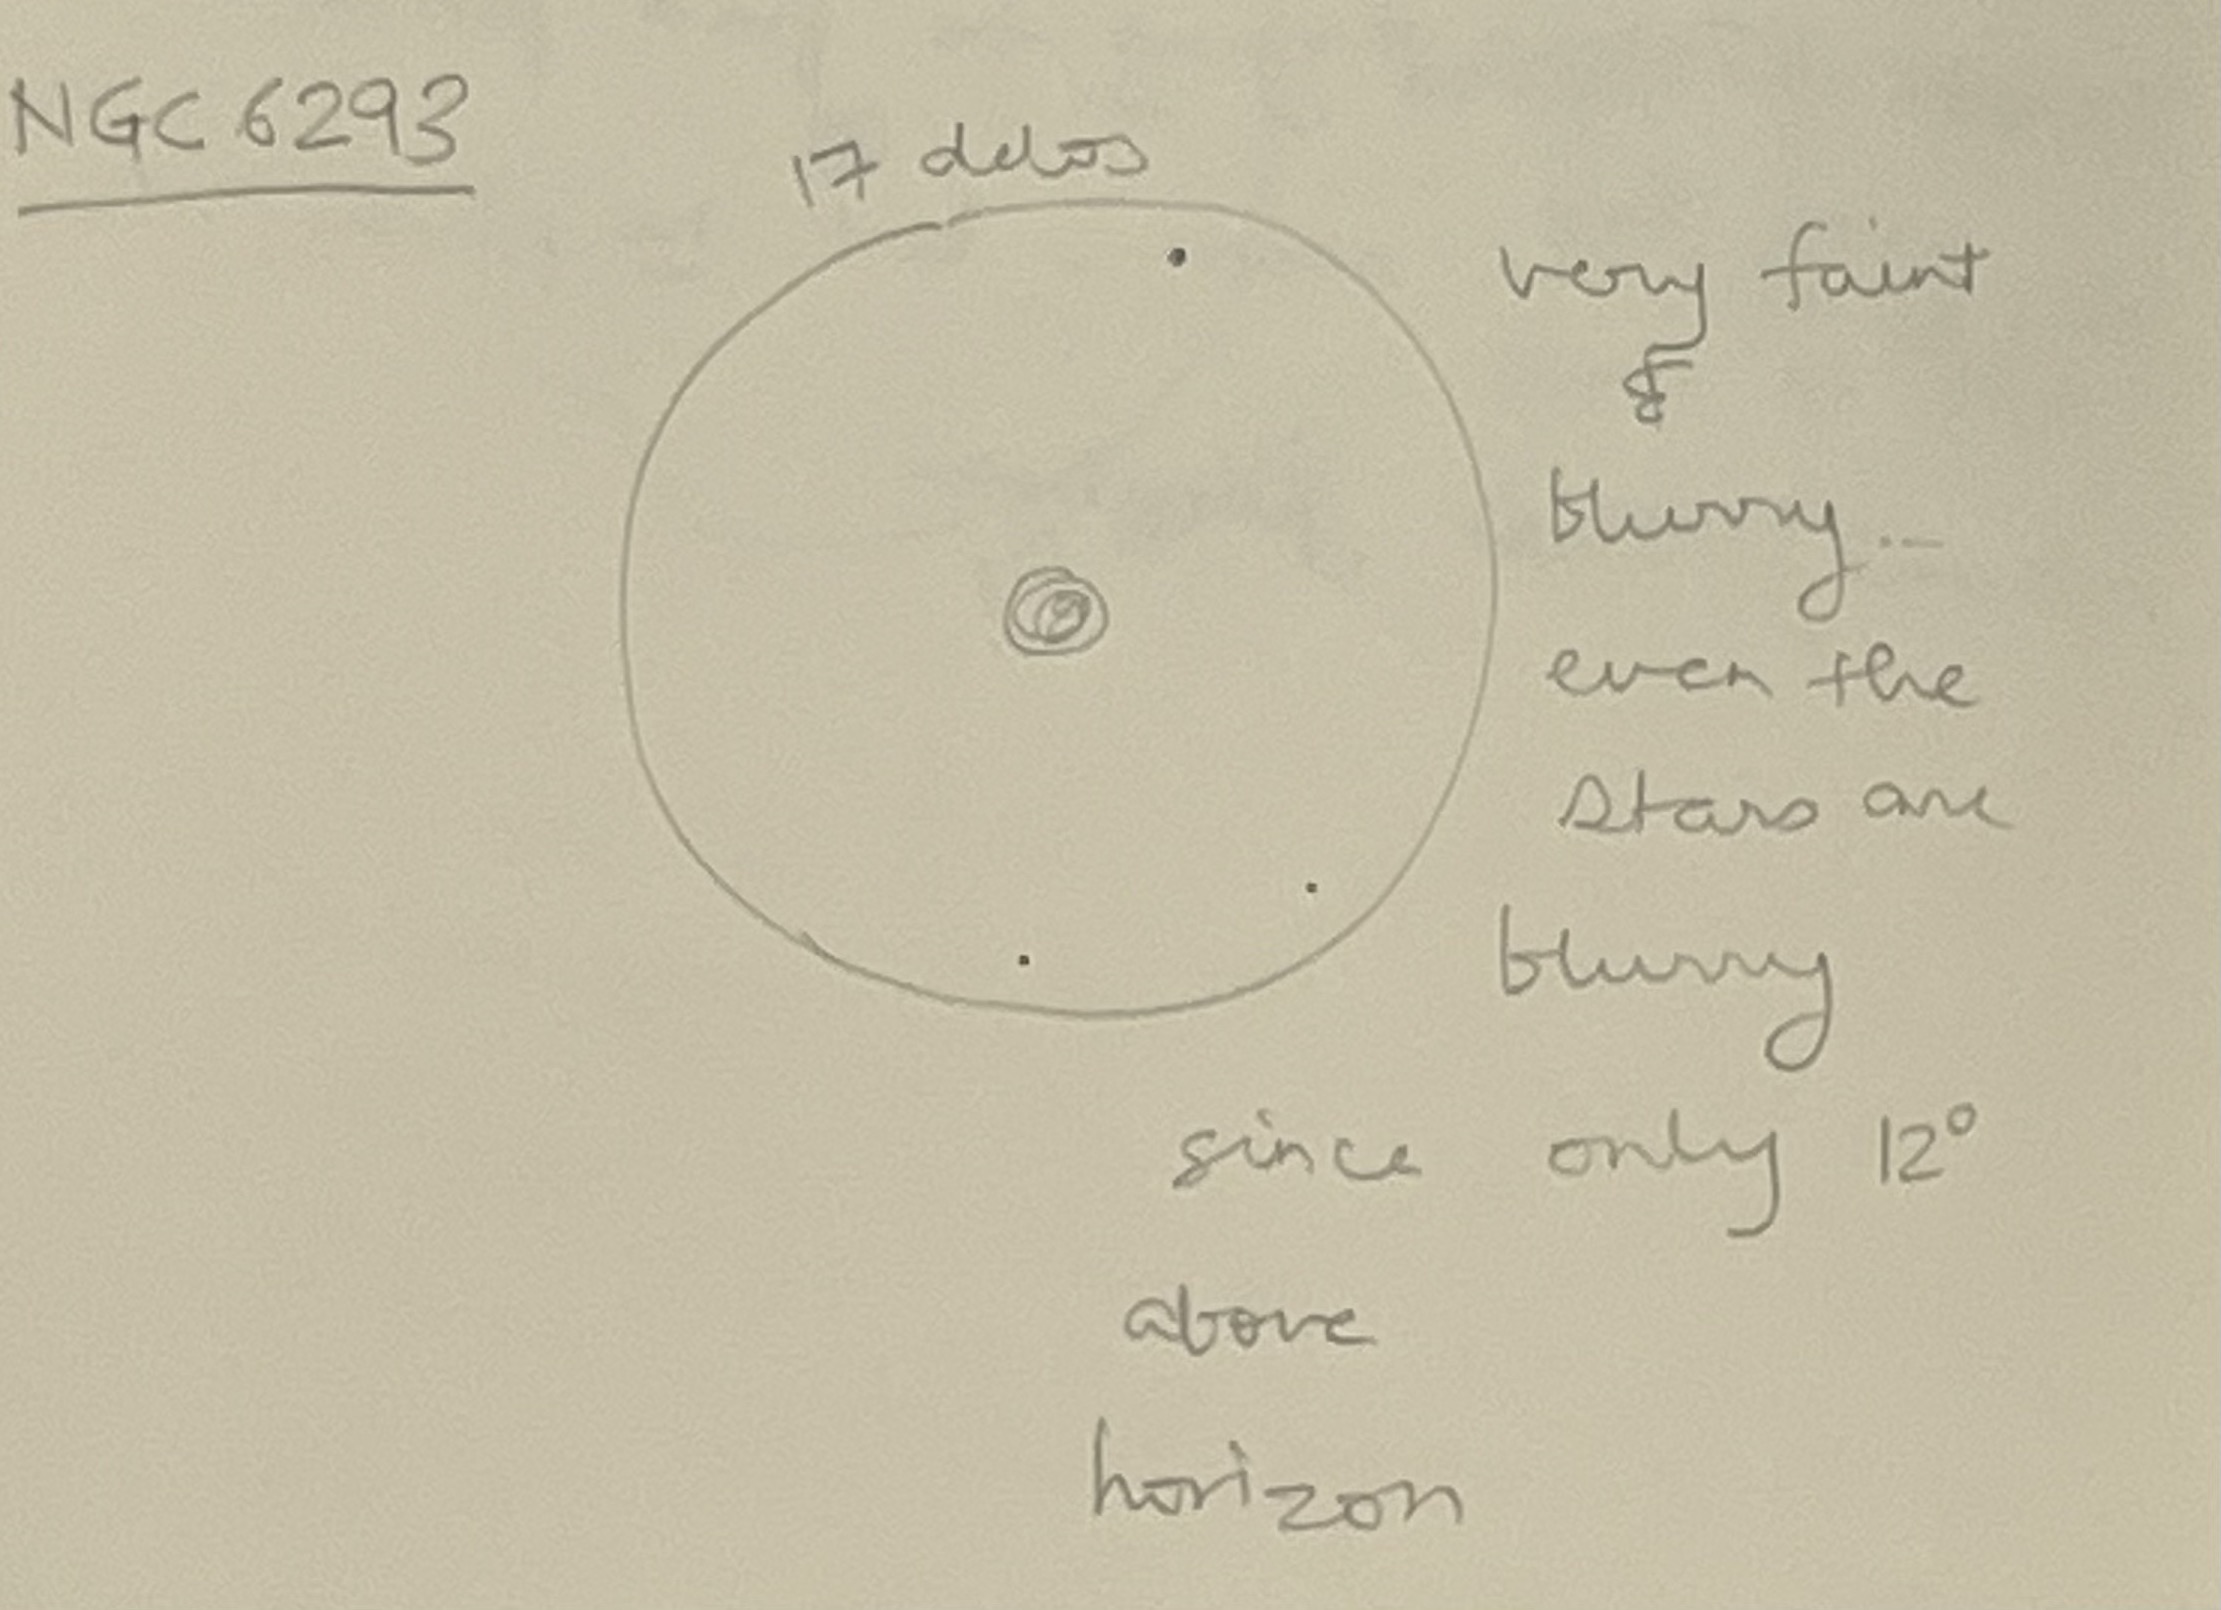 NGC 6293
17 delos
very faint
&
blurry...
even the
stars are
blurry
since only 12°
above
horizon